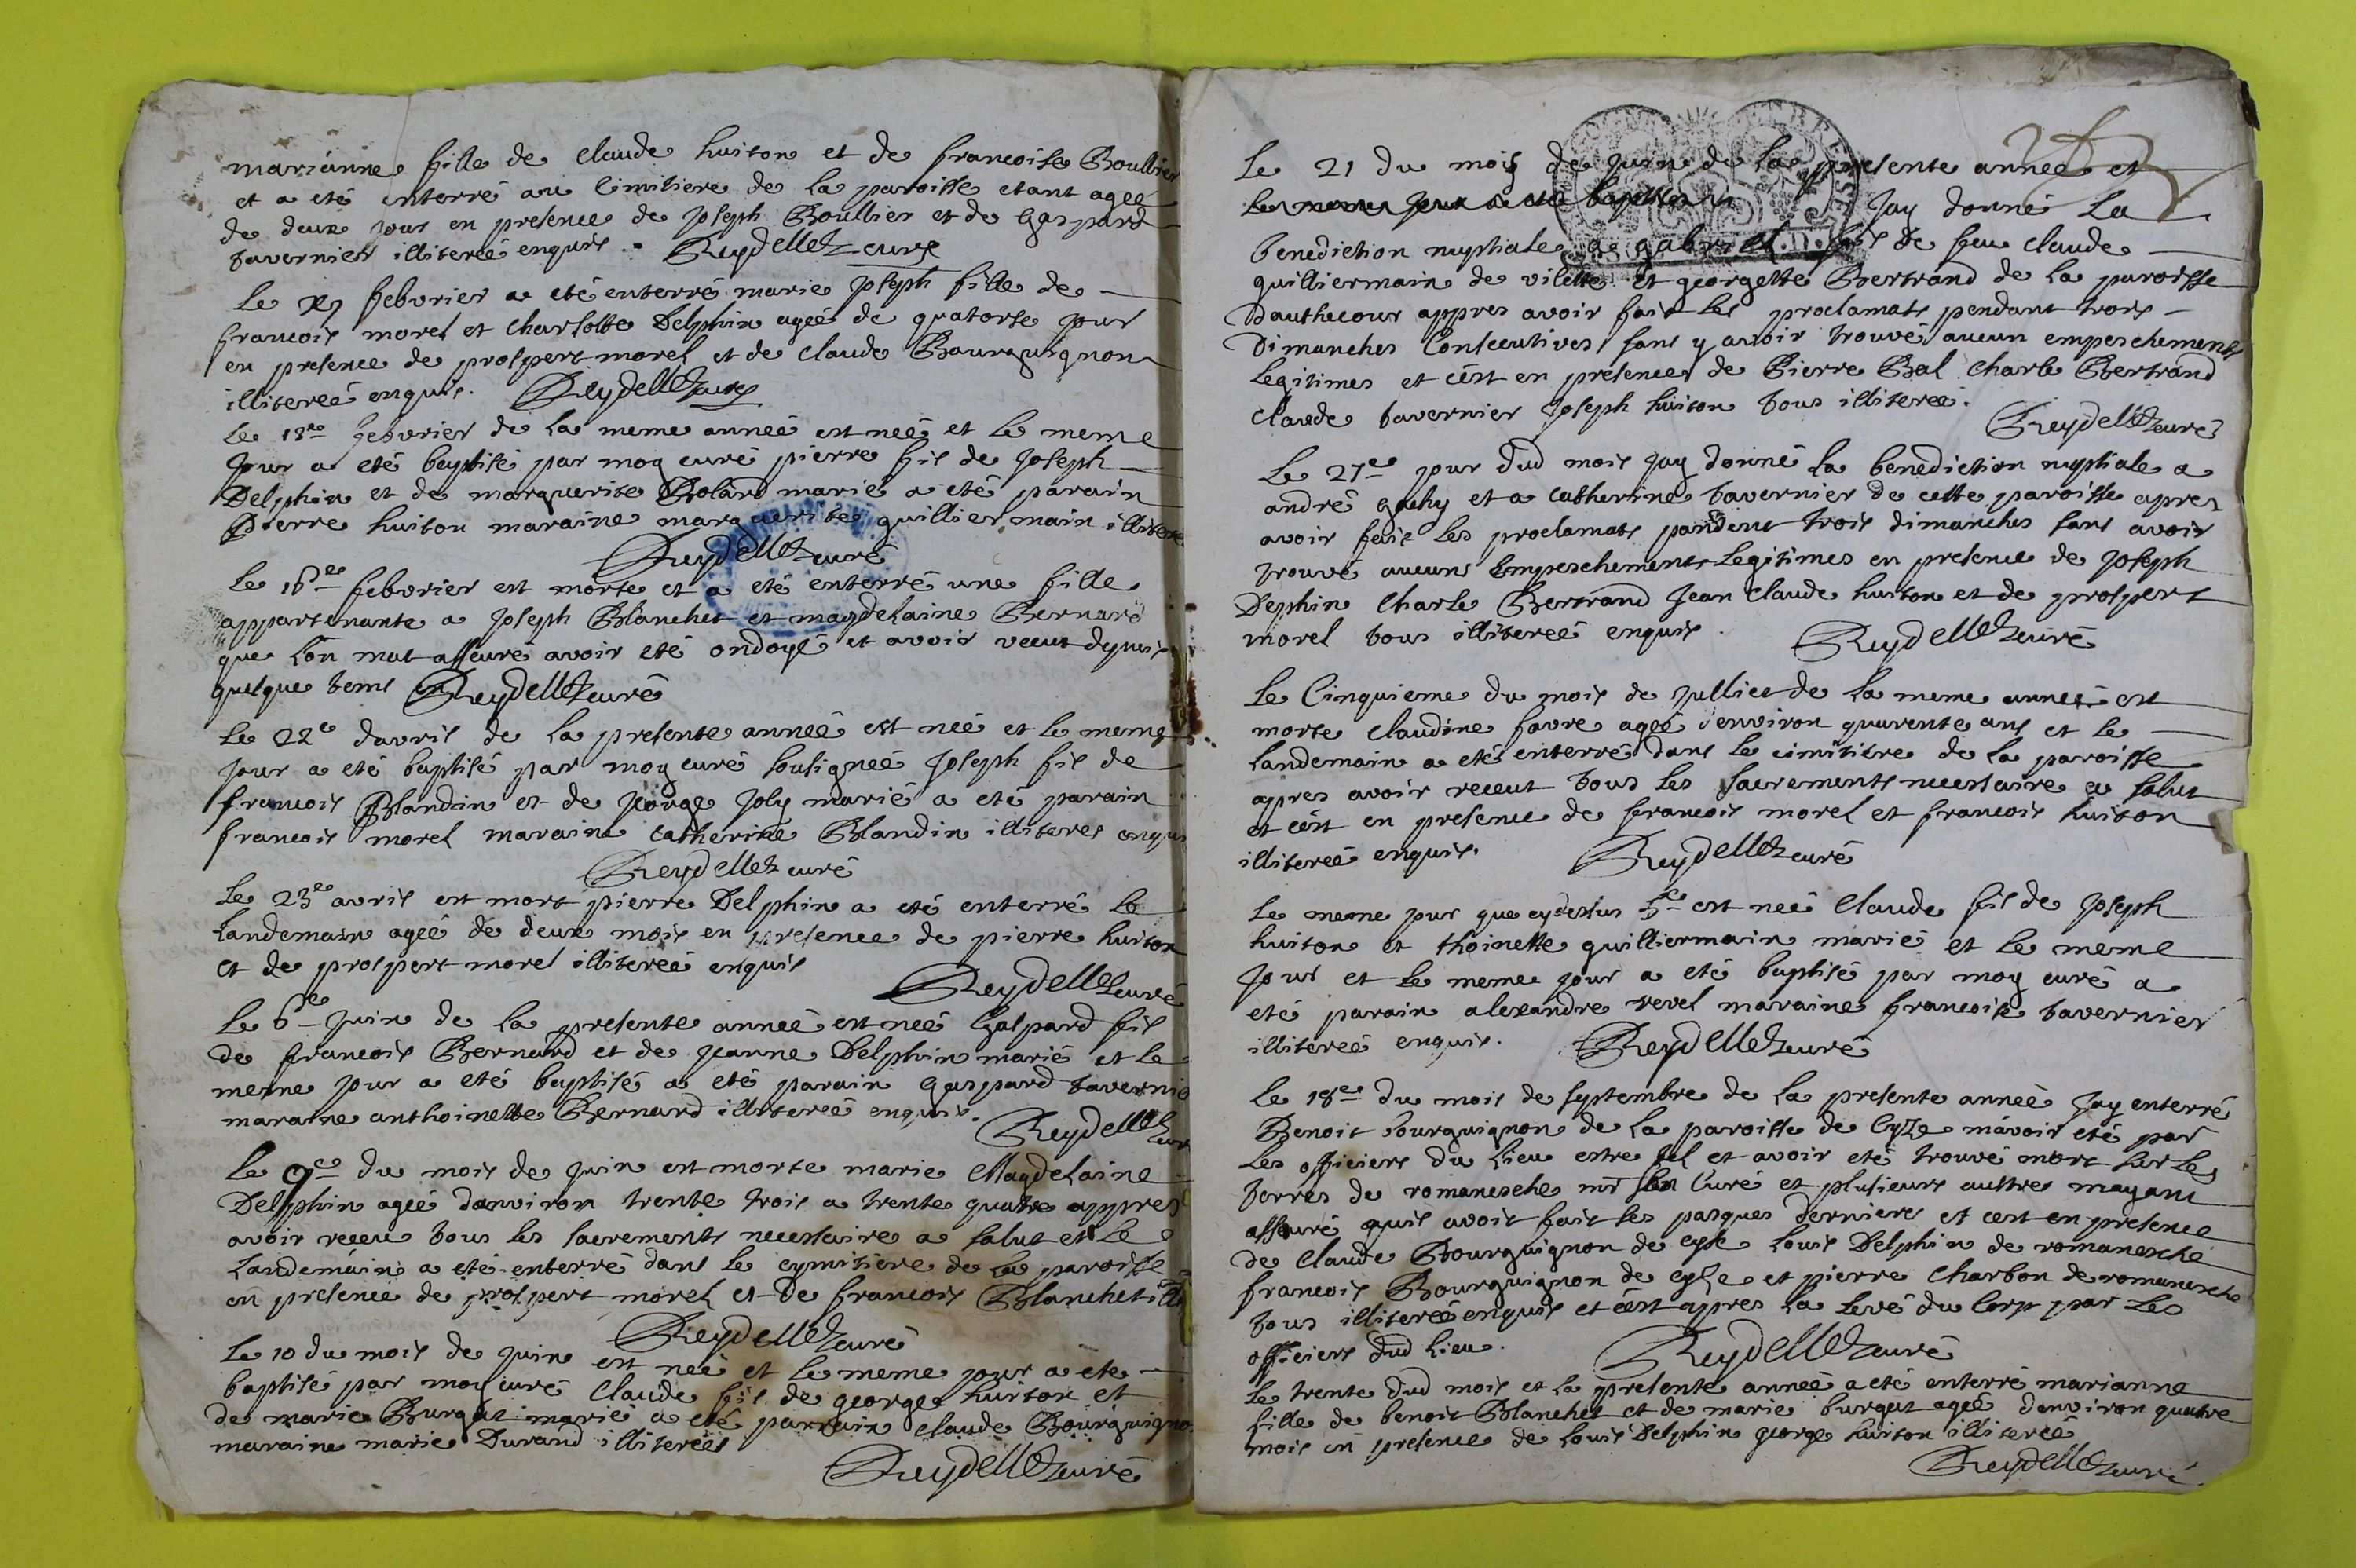 marianne fille de claude huiton et de francoise Boullier
et a eté enterré au cimitiere de la paroisse etant ageé
de deux jour en presence de joseph Boullier et de Gaspard
tavernier illitereé enquis. Reydellet curé
Le febvrier a eté enterré marie joseph fille de
francois morel et charlotte Delphin ageé de quatorse jour
en presence de prospert morel et de claude Bourguignon
illitereé enquis. Reydellet curé
Le 13ᵉ febvrier de la meme anneé est neé et le meme
jour a eté baptisé par moy curé pierre fis de joseph
Delphin et de marguerite Bolard marié a eté parain
Pierre huiton maraine marguerite guilliermain illitere
Reydellet curé
Le 16ᵉ febvrier est morte et a eté enterré une fille
appartenante a joseph Blanchet et magdelaine Bernard
que lon mat asseuré avoir eté ondoyé et avoir vecut depuis
quelque tems Reydellet curé
Le 22ᵉ davril de la presente anneé est neé et le meme
jour a eté baptisé par moy curé sousigneé joseph fis de
francois Blandin et de jeorge joly marié a eté parain
francois morel maraine catherine Blandin illiteres enquis
Reydellet curé
Le 23ᵉ avril est mort pierre Delphin a eté enterré le
landemain ageé de deux mois en presence de pierre huiton
et de prospert morel illitereé enquis
Reydellet curé
Le 6ᵉ juin de la presente anneé est neé Gaspard fis
de francois Bernard et de jeanne Delphin marié et le
meme jour a eté baptisé a eté parain gaspard tavernie
maraine anthoinette Bernard illitereé enquis.
Reydellet cur
Le 9ᵉ du mois de juin est morte marie Magdelaine
Delphin ageé danviron trente trois a trente quatre appres
avoir receu tous les sacrements necessaire a salut et le
Landemain a eté enterré dans le cymitiere de la paroisse
en presence de prospert morel et de francois Blanchet ill
Reydellet curé
Le 10 du mois de juin est neé et le meme jour a ete
baptisé par moy curé Claude fis de george huiton et
de marie Burgat marié a eté parrain claude Bourguigno
maraine marie Durand illitereés
Reydellet curé
Le 21 du mois de juin de la presente anneé et
le meme jour a eté baptisé jay donné la
benediction nuptiale a gabriel fils de feu claude
guilliermain de vilette et georgette Bertrand de la paroisse
dauthecour appres avoir fait les proclamats pendant trois
Dimanches Consecutives sans y avoir trouvé aucun empeschements
Legitimes et cest en presence de Pierre Bal charle Bertrand
claude tavernier joseph huiton tous illitereé.
Reydellet curé
Le 27ᵉ jour dud mois jay donné la benediction nuptiale a
andré gachy et a catherine tavernier de cette paroisse apres
avoir fait les proclamats pandent trois dimanches sans avoir
trouvé aucuns empeschements legitimes en presence de joseph
Dephin charle Bertrand jean claude huiton et de prospert
morel tous illitereé enquis. Reydellet curé
Le Cinquieme du mois de juillict de la meme anneé est
morte claudine favre ageé denviron quarente ans et le
landemain a eté enterré dans le cimitiere de la paroisse
appres avoir receut tous les sacrements necessaire a salut
et cest en presence de francois morel et francois huiton
illitereé enquis. Reydellet curé
Le meme jour que cydessus 5ᵉ est neé Claude fis de joseph
huiton et thoinette guilliermain marié et le meme
jour et le meme jour a eté baptisé par moy curé a
eté parain alexandre revel maraine francoise tavernier
illitereé enquis. Reydellet curé
Le 18ᵉ du mois de septembre de la presente anneé jay enterré
Benoit bourguignon de la paroisse de Cyze mavoir eté par
les officiers du lieu estre tel et avoir eté trouvé mort sur les
terres de romanesche mr son Curé et plusieurs aultres mayant
asseuré quil avoit fait les pasques dernieres et cest en presence
de claude Bourguignon de cyse Louis Delphin de romanesche
francois Bourguignon de cyse et pierre Charbon de romanesche
tous illitereé enquis et cest appres la levé du Corp par les
officiers dud lieu. Reydellet curé
Le trente dud mois et la presente anneé a eté enterré marianne
fille de benoit Blanchet et de marie burgat ageé danviron quatre
mois en presence de Louis Delphin george huiton illitereé
Reydellet curé